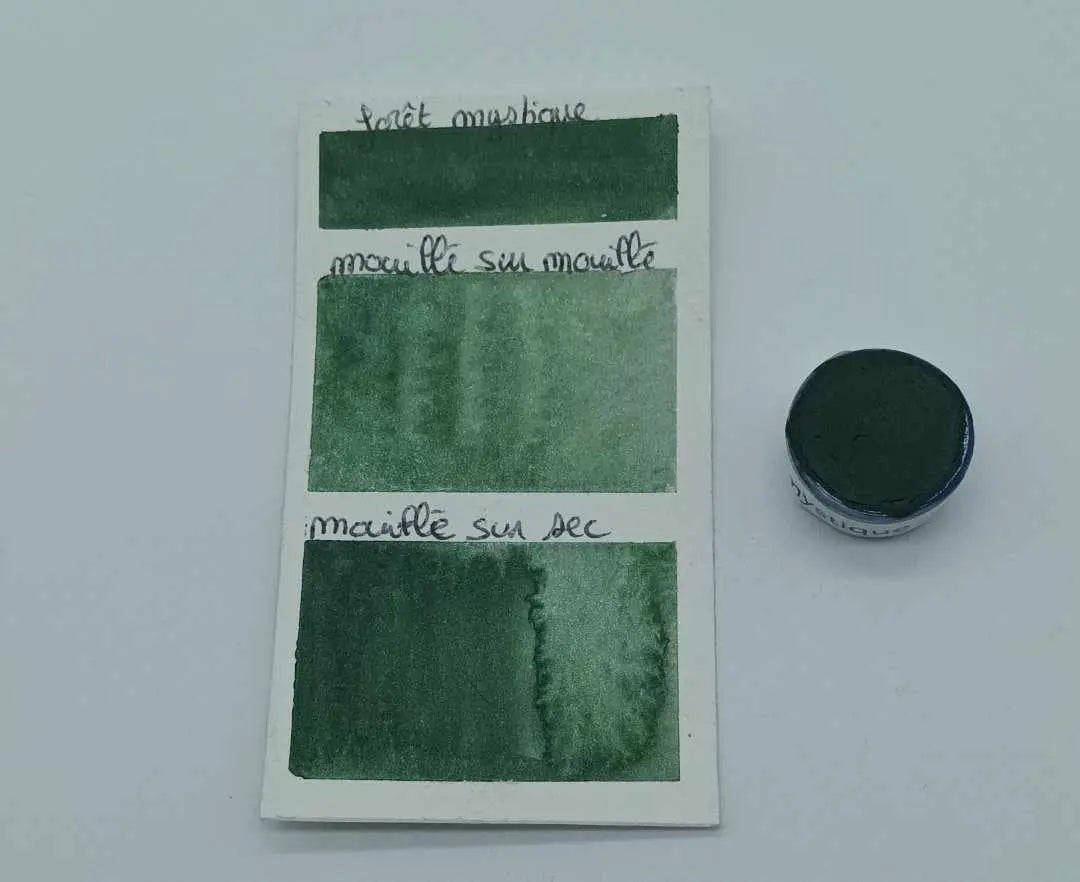 forêt mystique
mouillé sur mouillé
mouillé sur sec
mystique